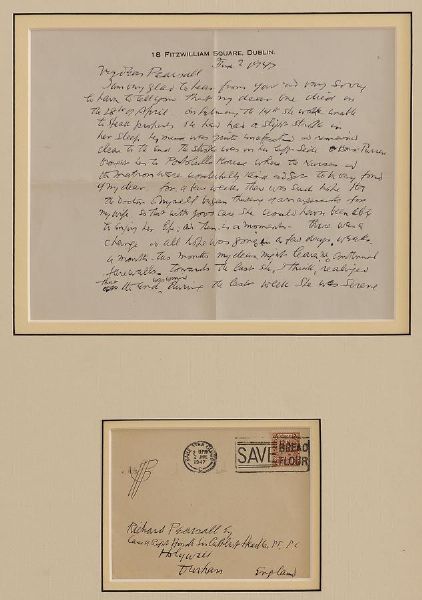 18 FITZWILLIAM SQUARE, DUBLIN.
June 2 1947
My dear Pearsall
I am very glad to hear from you and very sorry
to have to tell you that my dear one died on
the 28th of April on February the 14th she was unable
to speak properly. She had had a slight stroke in
her sleep her mind was quite unaffected and remained
clear to the end. The stroke was on her left side.
her to Portobello House where the Nurses and
the matron were wonderfully kind and got to be very fond
of my dear. For a few weeks there was such hope
the Doctors & myself began making of arrangements for
my wife, so that with good care she would have been able
to enjoy her life; then in a moment there was a
change & all hope was gone, in a few days, weeks
a month. two months my dear might leave us, continued
farewells. towards the last she, I think, realized
the end, During the last week she was serene
JUNE
1947
SAVE BREAD
FLOUR
JBY
Richard Pearsall Esq
Care of Right Honble Sir Cuthbert Headlam, M.P. P.C.
Holywell
Durham England